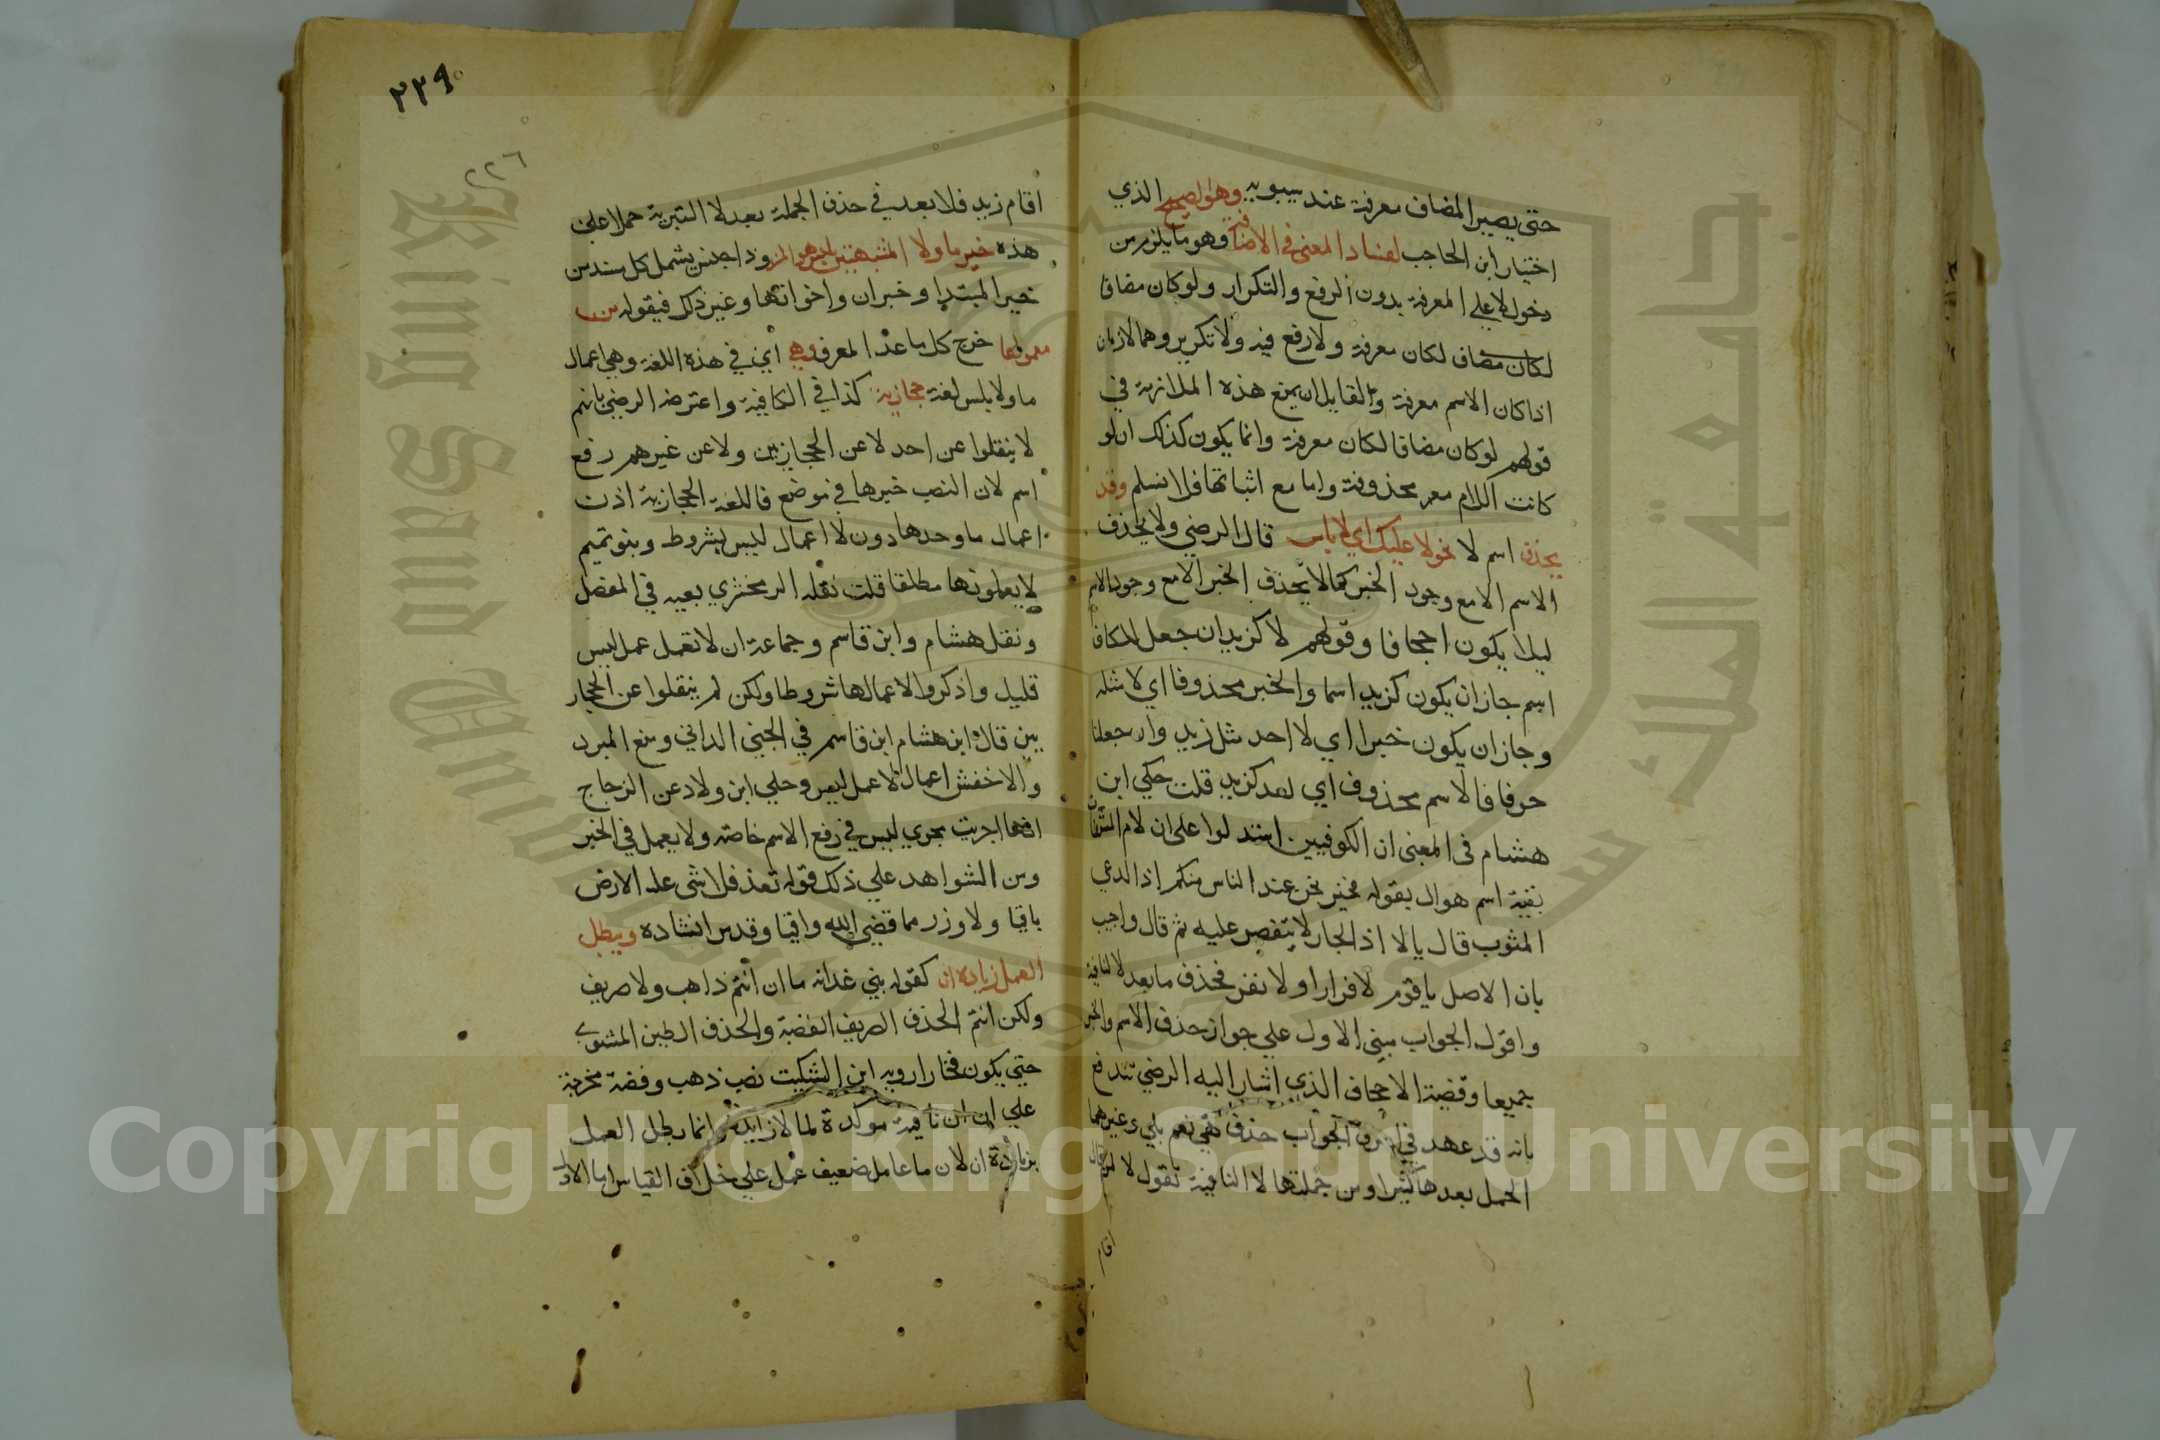 حتى يصير المضاف معرفة عند سيبويه وهو الصحيح الذي
اختيار ابن الحاجب لفساد المعنى في الاضافة وهو ما يلزم من
دخول لا على المعرفة بدون الرفع والتكرار ولو كان مضافا
لكان مضاف لكان معرفة ولا رفع فيه ولا تكرير وهما لازمان
اذا كان الاسم معرفة ولقايل ان يمنع هذه الملازمة في
قولهم لو كان مضافا لكان معرفة وانما يكون كذلك ان لو
كانت اللام معه محذوفة واما مع اثباتها فلا نسلم وقد
يحذف اسم لا نحو لا عليك اي لا باس قال الرضي ولا يحذف
الاسم الا مع وجود الخبر كما لا يحذف الخبر الا مع وجود الاسم
ليلا يكون اجحافا وقولهم لا كزيد ان جعل الكاف
اسم جاز ان يكون كزيد اسما والخبر محذوفا اي لا مثله
وجاز ان يكون خبرا اي لا احد مثل زيد وان جعلنا
حرفا فالاسم محذوف اي لا احد كزيد قلت حكى ابن
هشام في المغنى ان الكوفيين استدلوا على ان لام المستغاث
بقية اسم هو ال بقوله فخير نحن عند الناس منكم اذا الداعي
المثوب قال يا لا اذ الجار لا يقتصر عليه ثم قال واجيب
بان الاصل يا قوم لا فرار او لا نفر فحذف ما بعد لا النافية
واقول الجواب مبنى الاول على جواز حذف الاسم والخبر
جميعا وقضية الاجحاف الذي اشار اليه الرضي تندفع
بانه قد عهد في احرف الجواب حذف نعم بلى وغيرهما
الجمل بعدها كثيرا ومن جملتها لا النافية تقول لا لمن قال
اقام
٢٣٩
٢٢٦
اقام زيد فلا بعد في حذف الجملة بعد لا التبرية حملا على
هذه خبر ما ولا المشبهتين بليس هو المسند وذا جنس يشمل كل مسند من
خبر المبتدا وخبر ان واخواتها وغير ذلك فبقوله من
معمولها خرج كل ما عدا المعرف وهي اي في هذه اللغة وهي اعمال
ما ولا بليس لغة حجازية كذا في الكافية واعترض الرضي بانهم
لا ينقلوا عن احد لا عن الحجازيين ولا عن غيرهم رفع
اسم لا ن النصب خبرها في موضع فاللغة الحجازية اذن
اعمال ما وحدها دون لا اعمال ليس بشروط وبنو تميم
لا يعملونها مطلقا قلت نقله الزمخشري بعينه في المفصل
ونقل هشام وابن قاسم وجماعة ان لا تعمل عمل ليس
قليل واذكروا لاعمالها شروطا ولكن لم ينقلوا عن الحجاز
يين قال ابن هشام ابن قاسم في الجنى الداني ومنع المبرد
والاخفش اعمال لا عمل ليس وحكى ابن ولاد عن الزجاج
انها اجريت مجرى ليس في رفع الاسم خاصة ولا يعمل في الخبر
ومن الشواهد على ذلك قوله تعز فلا شى على الارض
باقيا ولا وزر مما قضى الله واقيا وقد مر انشاده ويبطل
العمل زيادة ان كقوله بني غدانة ما ان انتم ذاهب ولا صريف
ولكن انتم الخزف الصريف الفضة والخزف الطين المشوي
حتى يكون فخارا رويه ابن السكيت نصب ذهب وفضة مخرجة
على ان ان نافية موكدة لما لا زايدة وانما بطل العمل
بزيادة ان لان ما عامل ضعيف عمل على خلاف القياس اما الاول
جامعة الملك سعود
King Saud University
Copyright © King Saud University